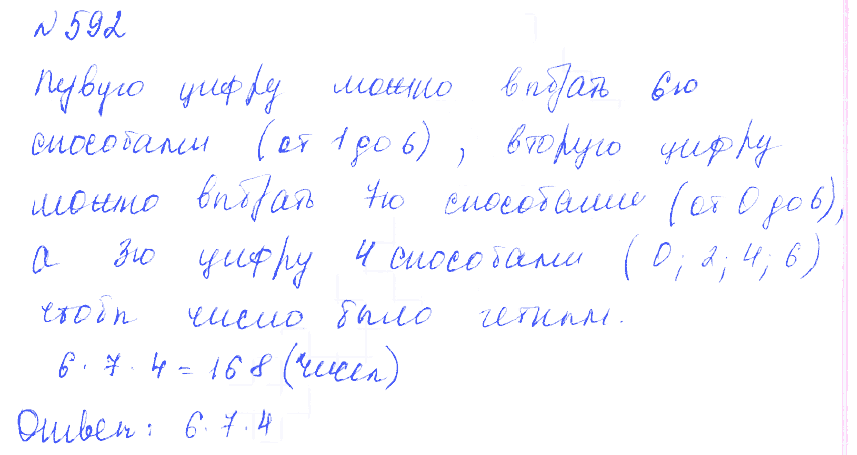 № 592
Первую цифру можно выбрать 6ю
способами (от 1 до 6), вторую цифру
можно выбрать 7ю способами (от 0 до 6),
а 3ю цифру 4 способами (0; 2; 4; 6)
чтобы число было четным.
6 · 7 · 4 = 168 (чисел)
Ответ: 6·7·4